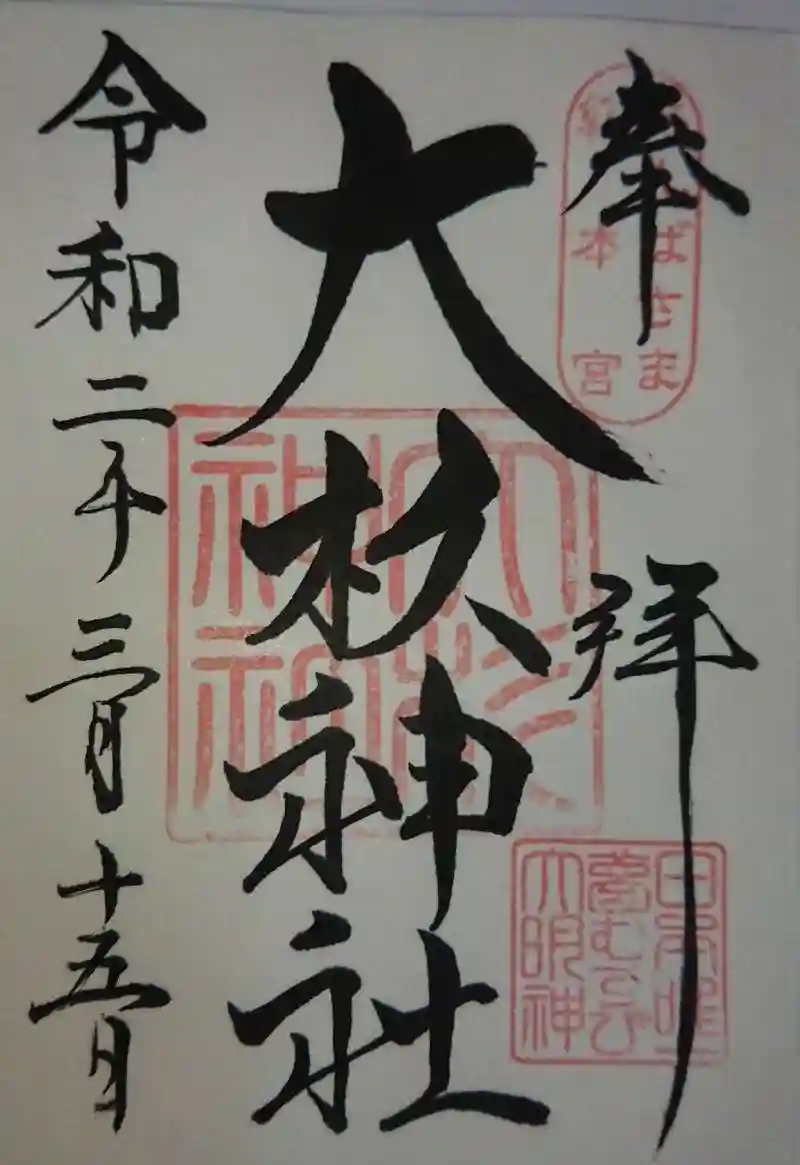 奉拝
大杉神社
令和二年三月十五日
あんばさま
総本宮
大杉神社
日本唯一
夢むすび
大明神